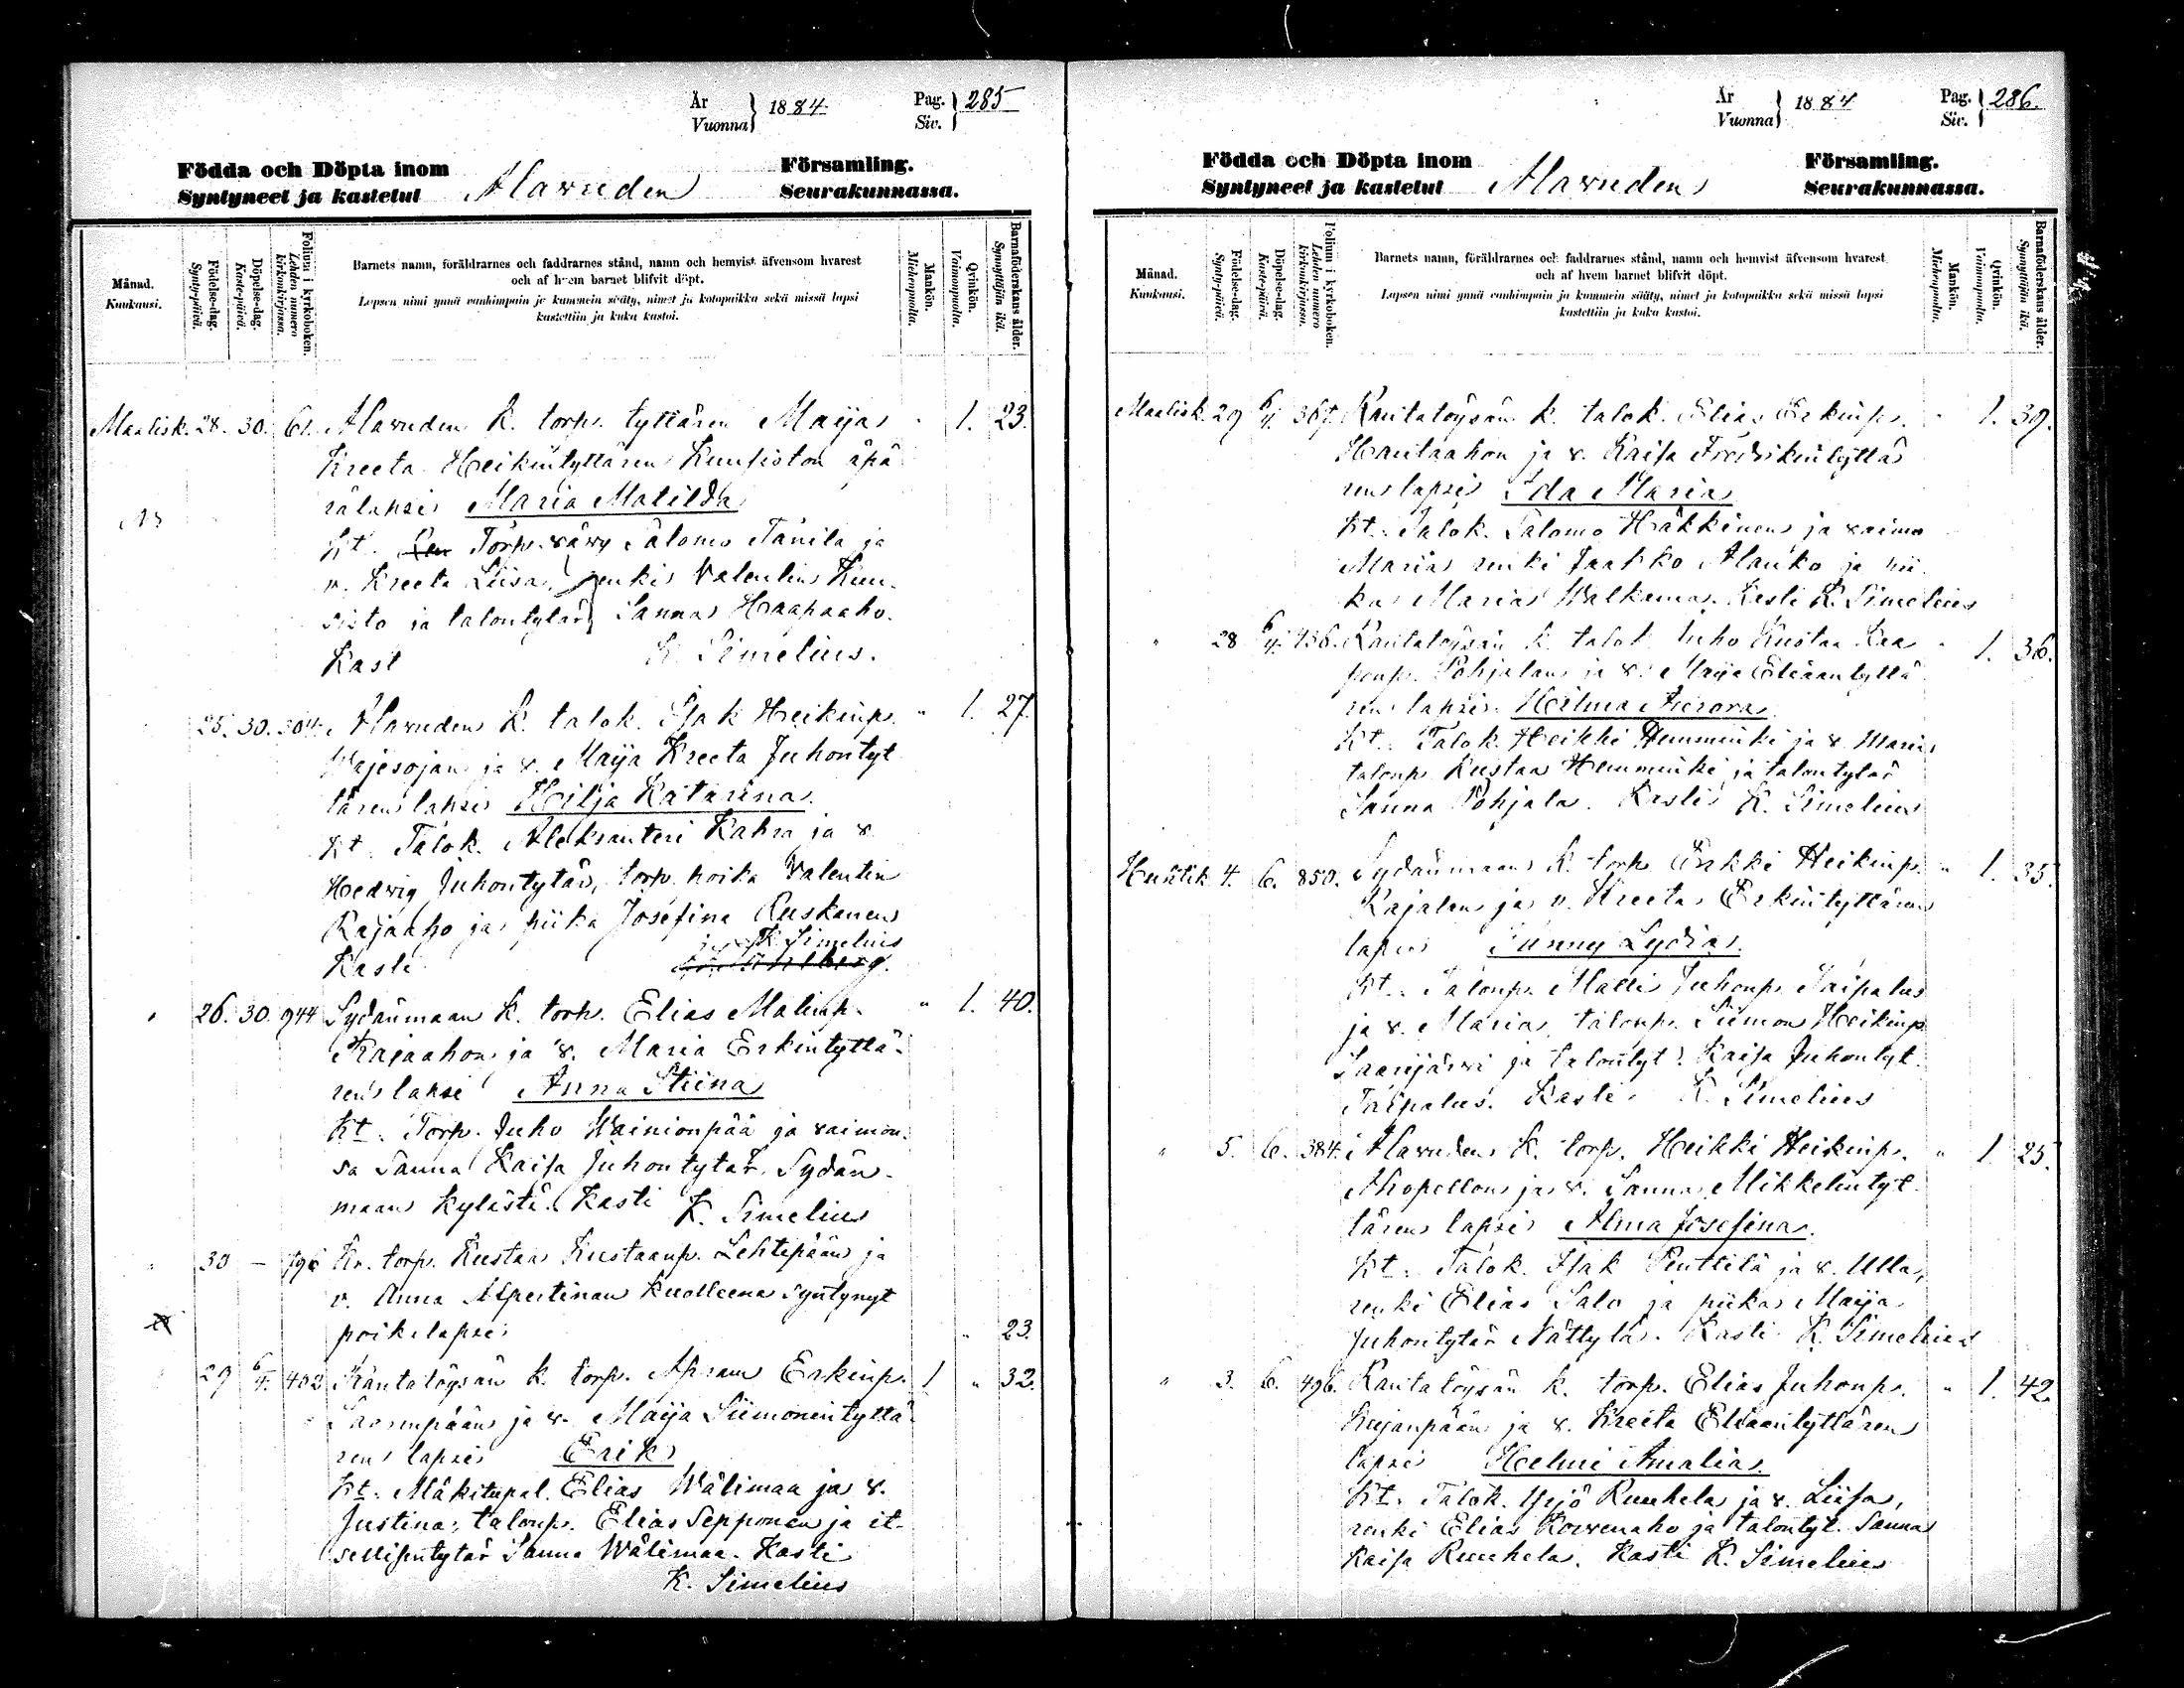 År
Vuonna } 1884. Pag.
Siv. } 285
Födda och Döpta inom Församling.
Syntyneet ja kastetut Alavuden Seurakunnassa.
Månad.
Kuukausi.
Födelse-dag.
Synty-päivä.
Döpelse-dag.
Kaste-päivä.
Folium i kyrkoboken.
Lehden numero
kirkonkirjassa.
Barnets namn, föräldrarnes och faddrarnes stånd, namn och hemvist äfvensom hvarest
och af hvem barnet blifvit döpt.
Lapsen nimi ynnä vanhimpain ja kummein sääty, nimet ja kotopaikka sekä missä lapsi
kastettiin ja kuka kastoi.
Mankön.
Miehenpuolta.
Qvinkön.
Vaimonpuolta.
Barnaföderskans ålder.
Synnyttäjän ikä.
Maalisk. 28. 30. 61. Alavuden k. torp. tyttären Maija 1. 23.
Kreeta Heikintyttären Kuusiston äpä
rälapsi Maria Matilda
Kt. Torp. vävy Salomo Tanila ja
v. Kreeta Liisa, renki Valentin Kuu-
sisto ja talontytär Sanna Haapaaho.
Kast K. Simelius.
25. 30. 304. Alavuden k. talok. Isak Heikinp. " 1. 27.
Wajesojan ja v. Maija Kreeta Juhontyt
tären lapsi Hilja Katarina.
Kt. Talok. Aleksanteri Kahra ja v.
Hedvig Juhontytär, torp. poika Valentin
Rajaaho ja piika Josefina Ruskanen
K. Simelius
Kasti
" 26. 30. 944 Sydänmaan k. torp. Elias Matinp. " 1. 40.
Rajaahon ja v. Maria Erkintyttä-
ren lapsi Anna Stiina
Kt. Torp. Juho Wainionpää ja vaimon-
sa Sanna Kaisa Juhontytär Sydän-
maan kylästä. Kasti K. Simelius
" 30 — 796 Kr. torp. Kustaa Kustaanp. Lehtipään ja
v. Anna Alpertinan kuolleena syntynyt
poikalapsi " 23.
29 6/4. 402 Rantatöysän k. torp. Apram Erkinp. 1 " 32.
Saarenpään ja v. Maija Siimonintyttä
ren lapsi Erik
Kt. Mäkitupal. Elias Wälimaa ja v.
Justina, talonp. Elias Sepponen ja it-
sellisentytär Sanna Wälimaa. Kasti
K. Simelius
År
Vuonna } 1884 Pag.
Siv. } 286.
Födda och Döpta inom Församling.
Syntyneet ja kastetut Alavuden Seurakunnassa.
Månad.
Kuukausi.
Födelse-dag.
Synty-päivä.
Döpelse-dag.
Kaste-päivä.
Folium i kyrkoboken.
Lehden numero
kirkonkirjassa.
Barnets namn, föräldrarnes och faddrarnes stånd, namn och hemvist äfvensom hvarest
och af hvem barnet blifvit döpt.
Lapsen nimi ynnä vanhimpain ja kummein sääty, nimet ja kotopaikka sekä missä lapsi
kastettiin ja kuka kastoi.
Mankön.
Miehenpuolta.
Qvinkön.
Vaimonpuolta.
Barnaföderskans ålder.
Synnyttäjän ikä.
Maalisk. 29 6/4. 367. Rantatöysän k. talok. Elias Erkinp. " 1. 39.
Hautaahon ja v. Kaisa Fredrikintyttä
ren lapsi Ida Maria
Kt. Talok. Salomo Häkkinen ja vaimo
Maria renki Jaakko Alanko ja pii
ka Maria Walkama. Kasti K. Simelius
" 28 6/4. 436. Rantatöysän k. talok. Juho Kustaa Kaa " 1. 36.
ponp. Pohjalan ja v. Maija Eliaantyttä
ren lapsi Hilma Aurora
Kt. Talok. Heikki Hemminki ja v. Maria
talonp. Kustaa Hemminki ja talontytär
Sanna Pohjala. Kasti K. Simelius
Huhtik 4. 6. 850. Sydänmaan k. torp. Erkki Heikinp. " 1. 35.
Rajalan ja v. Kreeta Erkintyttären
lapsi Sunny Lydia.
Kt. Talonp. Matti Juhonp. Taipalus
ja v. Maria, talonp. Siimon Heikinp.
Saarijärvi ja talontyt. Kaisa Juhontyt.
Taipalus. Kasti K. Simelius
" 5. 6. 384. Alavuden k. torp. Heikki Heikinp. " 1. 25.
Ahopellon ja v. Sanna Mikkelintyt
tären lapsi Alma Josefina.
Kt. Talok. Isak Penttilä ja v. Ulla,
renki Elias Salo ja piika Maija
Juhontytär Nättylä. Kasti K. Simelius
" 3. 6. 496. Rantatöysän k. torp. Elias Juhonp. " 1. 42.
Kujanpään ja v. Kreeta Eliaantyttären
lapsi Helmi Amalia.
Kt. Talok. Yrjö Ruuhela ja v. Liisa,
renki Elias Korvenaho ja talontyt. Sanna
Kaisa Ruuhela. Kasti K. Simelius